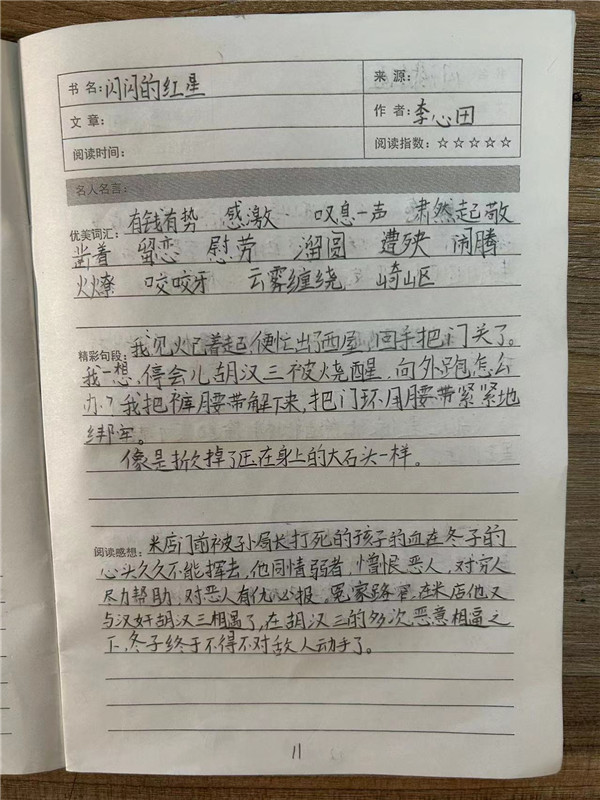 书 名:闪闪的红星
来 源:
文 章:
作 者:李心田
阅读时间:
阅读指数:☆☆☆☆☆
名人名言:
优美词汇: 有钱有势 感激 叹息一声 肃然起敬
凿着 留恋 慰劳 溜圆 遭殃 闹腾
火燎 咬咬牙 云雾缠绕 崎山区
精彩句段: 我见火已着起,便忙出了西屋,回手把门关了。
我一想,停会儿胡汉三被烧醒,向外跑怎么
办?我把裤腰带解下来,把门环用腰带紧紧地
绑牢。
像是掀掉了压在身上的大石头一样。
阅读感想: 米店门前被孙局长打死的孩子的血在冬子的
心头久久不能挥去,他同情弱者,憎恨恶人,对穷人
尽力帮助,对恶人有仇必报。冤家路窄,在米店他又
与汉奸胡汉三相遇了,在胡汉三的多次恶意相逼之
下,冬子终于不得不对敌人动手了。
11